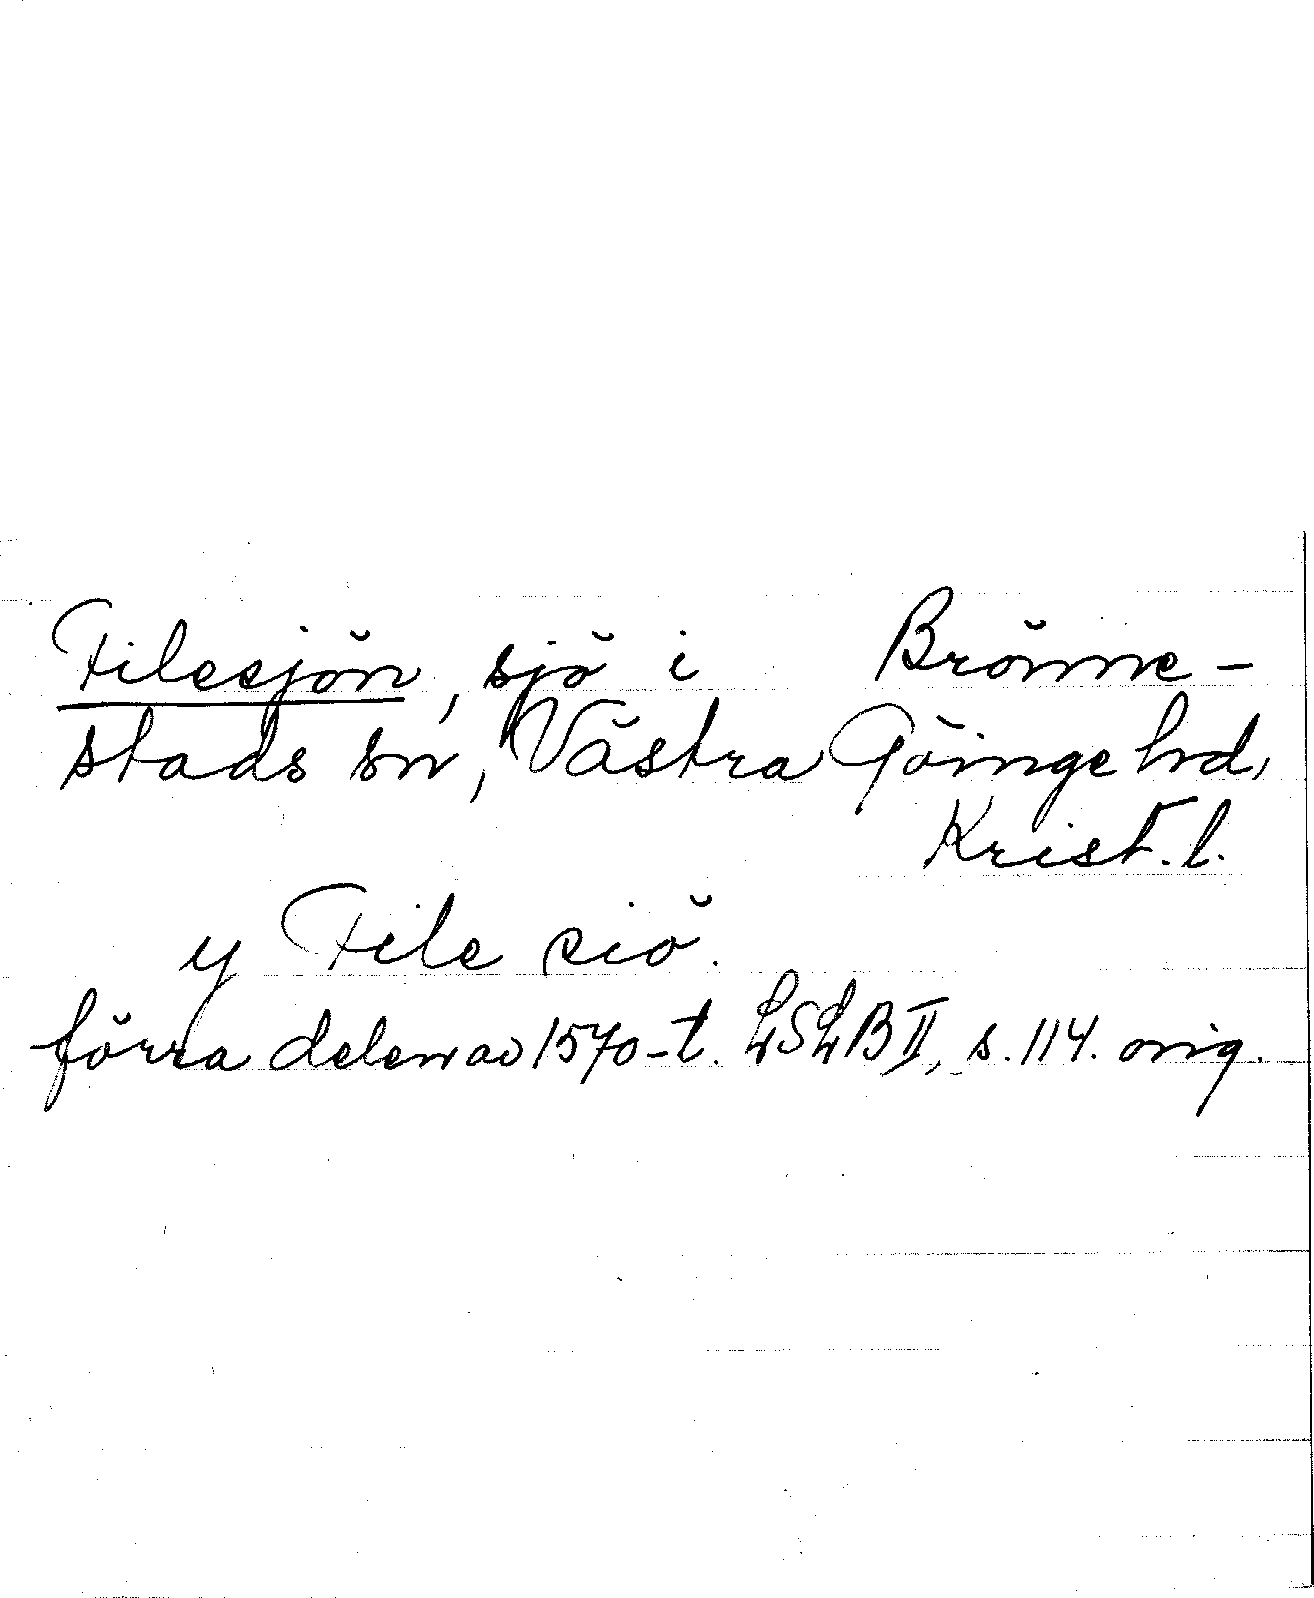 Filesjön, sjö i Brönne-
stads sn, Västra Göinge hrd,
Krist. l.
y File siö.
förra delen av 1570-t. LSLB II, s. 114. orig.